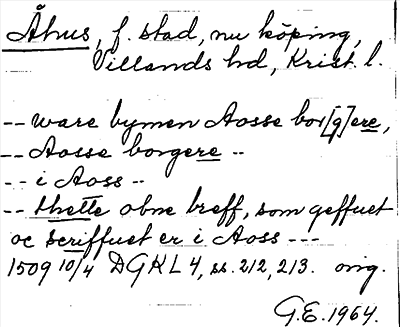 Åhus, f. stad, nu köping,
Villands hd, Krist. l.
-- ware bymen Aosse bor[g]ere,
-- Aosse borgere --
-- i Aoss --
-- thette obne breff, som geffuet
oc scriffuet er i Aoss ---
1509 10/4 DGKL 4, ss. 212, 213. orig.
G.E. 1964.